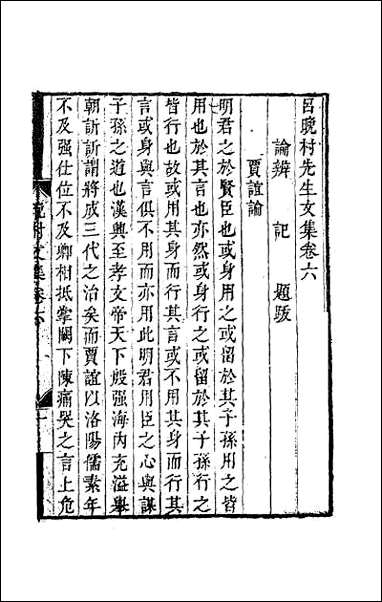 呂晚村先生文集卷六
論辨 記 題跋
賈誼論
明君之於賢臣也或身用之或留於其子孫用之皆
用也於其言也亦然或身行之或留於其子孫行之
皆行也故或用其身而行其言或不用其身而行其
言或身與言俱不用而亦用此明君用臣之心與謀
子孫之道也漢興至孝文帝天下殷强海内充溢舉
朝訢訢謂將成三代之治矣而賈誼以洛陽儒素年
不及强仕位不及卿相抵掌闕下陳痛哭之言上危
晚村文集卷六
一